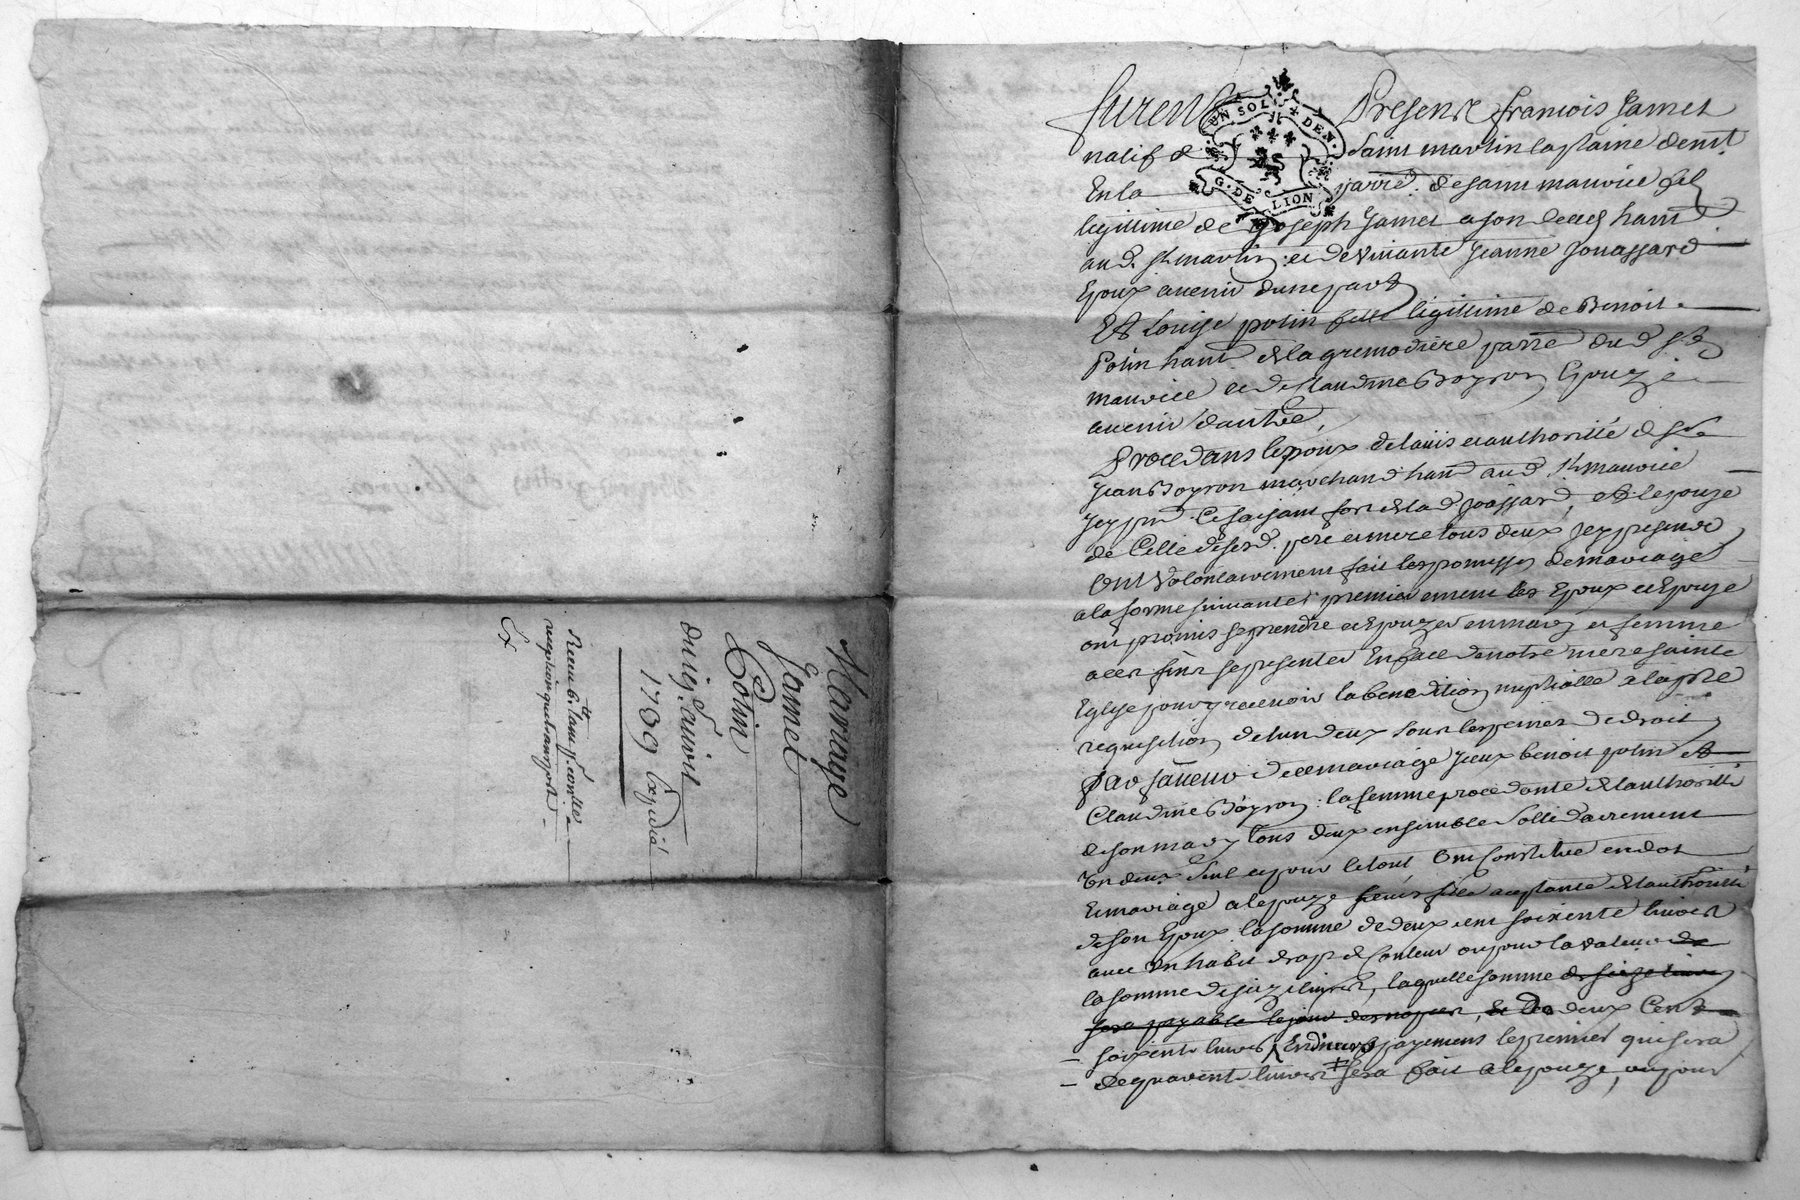 Mariage
Jamet
Potin
du 19e avril
1709 Expédié
Receu 6tt tant pr conlle
UN SOL DEN.
G. DE LION
furent Present françois Jamet
natif de Saint martin la plaine demt
En la parre. de saint maurice fils
legitime de Joseph Jamet a son deced hant
aud. st martin et de vivante Jeanne Jouassard
Epoux avenir dune part
Et Louise potin fille legitime de Benoist
Potin hant de la gremodiere parre dud st
maurice et de Claudine Boyron Epouze
avenir dautre,
Procedans lepoux de lavis et authorité de sr
Jean Boyron marchand hant aud. st maurice
Icy pnt. Ce faisant fort de lad Joassard, et lepouze
de Celle desesd. pere et mere tous deux Icy presents
Ont volontairement fait les promesses de mariage
a la forme suivante, premierement les Epoux et Epouze
ont promis se prendre et Epouzer en mary et femme
a cet fin se presenter En face de notre mere sainte
Eglise pour y recevoir la benediction nuptialle a la pre
requisition de lun deux sous les peines de droit
Par faveur de ce mariage Iceux benoist potin et
Claudine Boyron la femme procedante de lauthorité
de son mary tous deux ensemble solidairement
Un deux seul et pour le tout Ont Constitué en dot
Et mariage a lepouze leur fille aceptante de lauthorité
de son Epoux la somme de deux cent soixente livres
avec Un habit drap de Couleur ou pour la valeur de
la somme de seize livres, laquelle somme de seize livres
sera payable le jour des nopces, et les deux Cent
soixente livres En divers payemens le premier qui sera
de quarente livres sera fait a lepouze, au jour